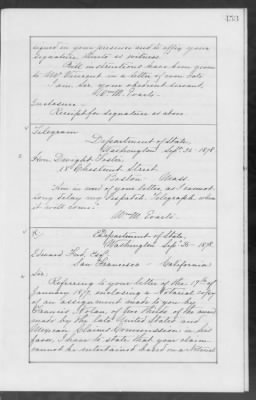 153
signed in your presence and to affix your
signature thereto as witness.
Full instructions have been given
to Mr Vincent in a letter of even date.
I am Sir, your obedient servant,
Wm M. Evarts.
Enclosure
Receipt for signature as above.
Telegram
Department of State,
Washington Sept. 25 - 1878.
Hon. Dwight Foster,
18 Chestnut Street,
Boston - Mass.
Am in need of your letter, as I cannot
long delay my despatch. Telegraph when
it will come.
Wm M. Evarts.
Department of State,
Washington Sept. 1878.
Edward Esq.
San Francisco - California
Sir:
Referring to your letter of the 17th of
January 187 enclosing a Notarial copy
of an assignment made to you by
Francis Nolan, of two thirds of the award
made by the late United States and
Mexican Claims Commission in his
favor, I have to state that your claim
cannot be entertained based on a Notarial